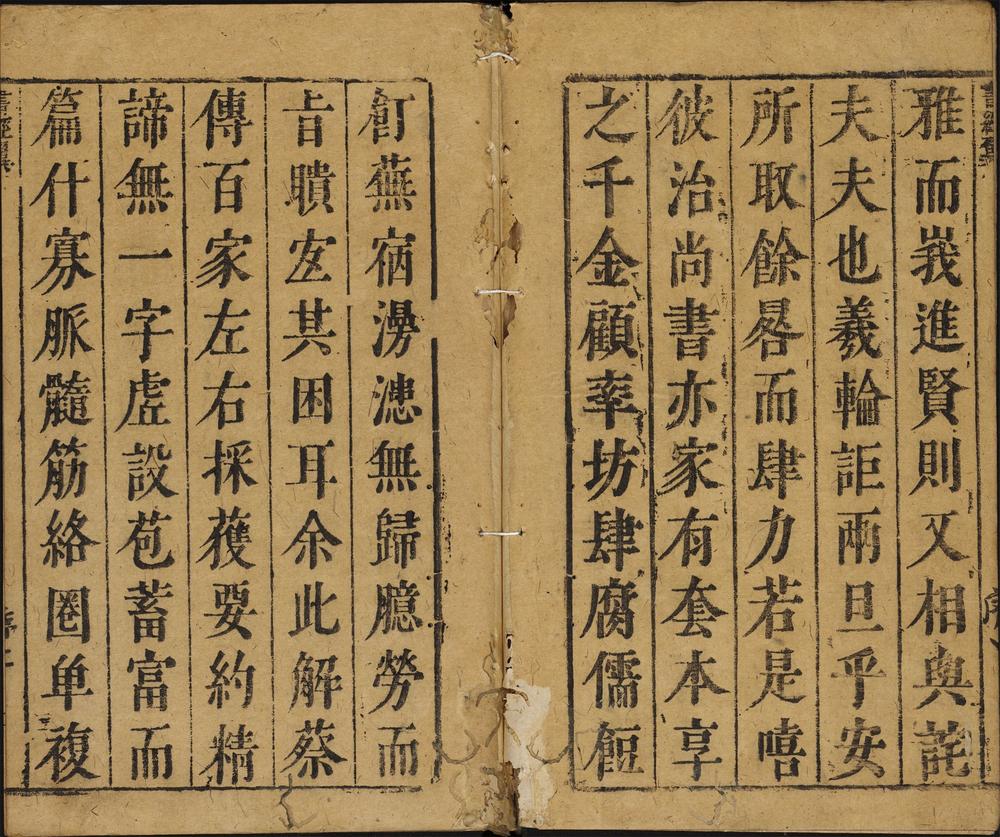 雅而峩進賢則又相與詫
夫夫也羲輪詎兩旦乎安
所取餘晷而肆力若是嘻
彼治尚書亦家有套本享
之千金顧率坊肆腐儒飣
飣蕪宿澇漶無歸臆勞而
旨聵宐其困耳余此解蔡
傳百家左右採蒦要約精
諦無一字虛設苞蓄富而
篇什寡脈髓筋絡圈单複